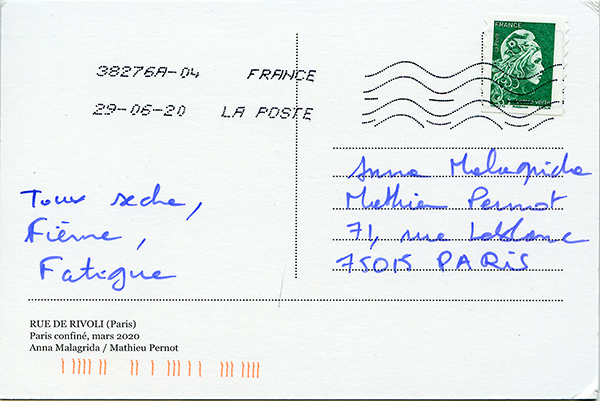 38276A-04 FRANCE
29-06-20 LA POSTE
FRANCE
Anna Malagrida
Mathieu Pernot
71, rue Leblanc
75015 PARIS
Toux sèche,
Fièvre,
Fatigue
RUE DE RIVOLI (Paris)
Paris confiné, mars 2020
Anna Malagrida / Mathieu Pernot